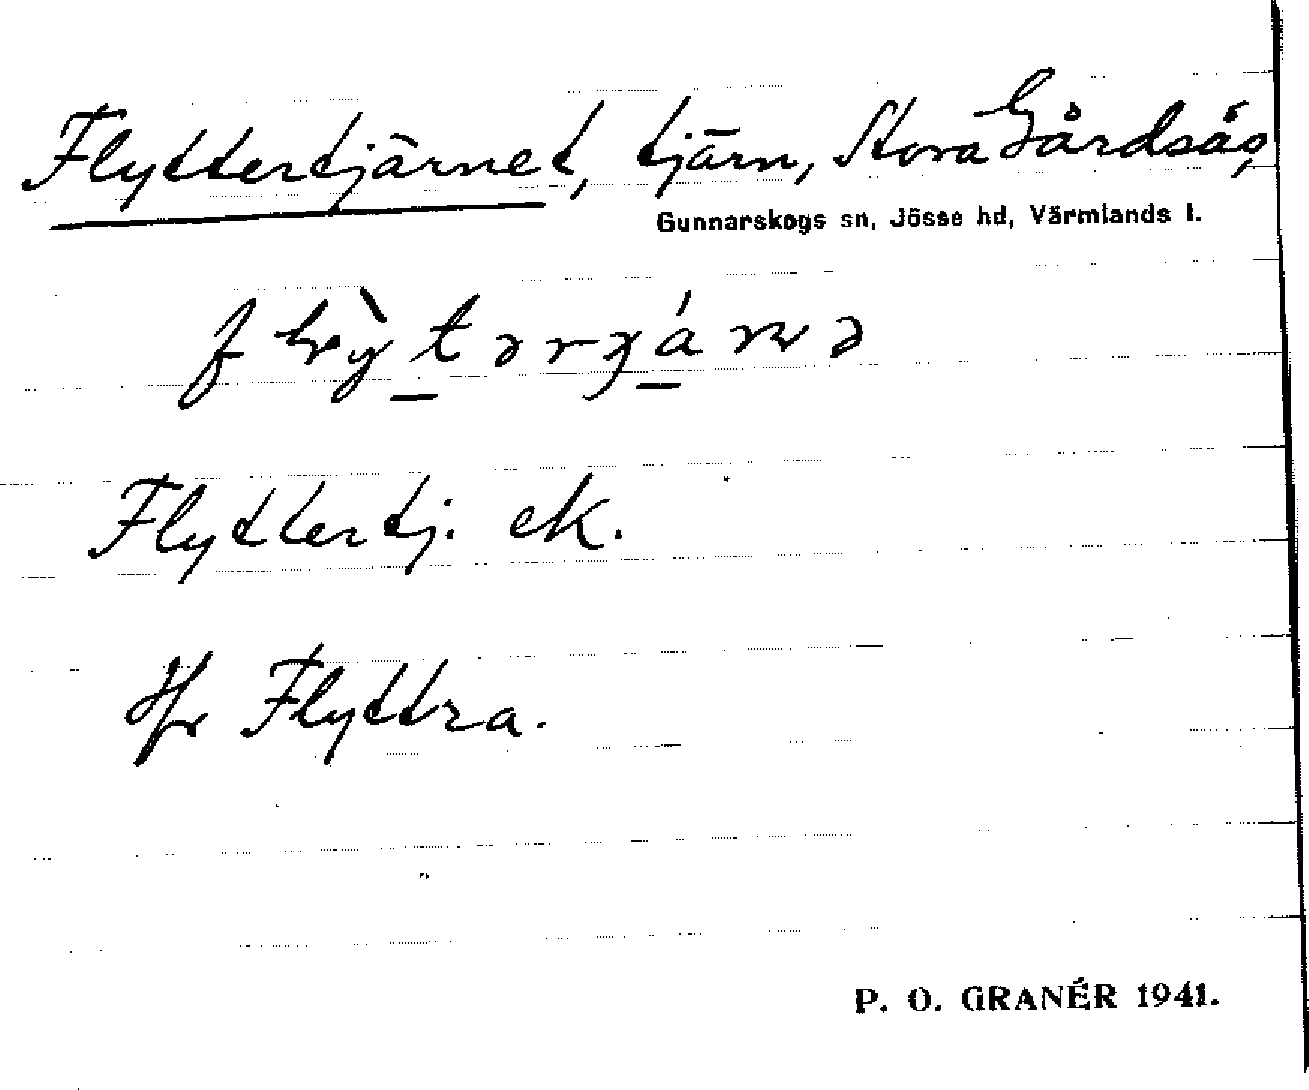 Flyttertjärnet, tjärn, Stora Gårdsås,
Gunnarskogs sn, Jösse hd, Värmlands l.
Flyttertj. ek.
Jfr Flyttra.
P. O. GRANÉR 1941.